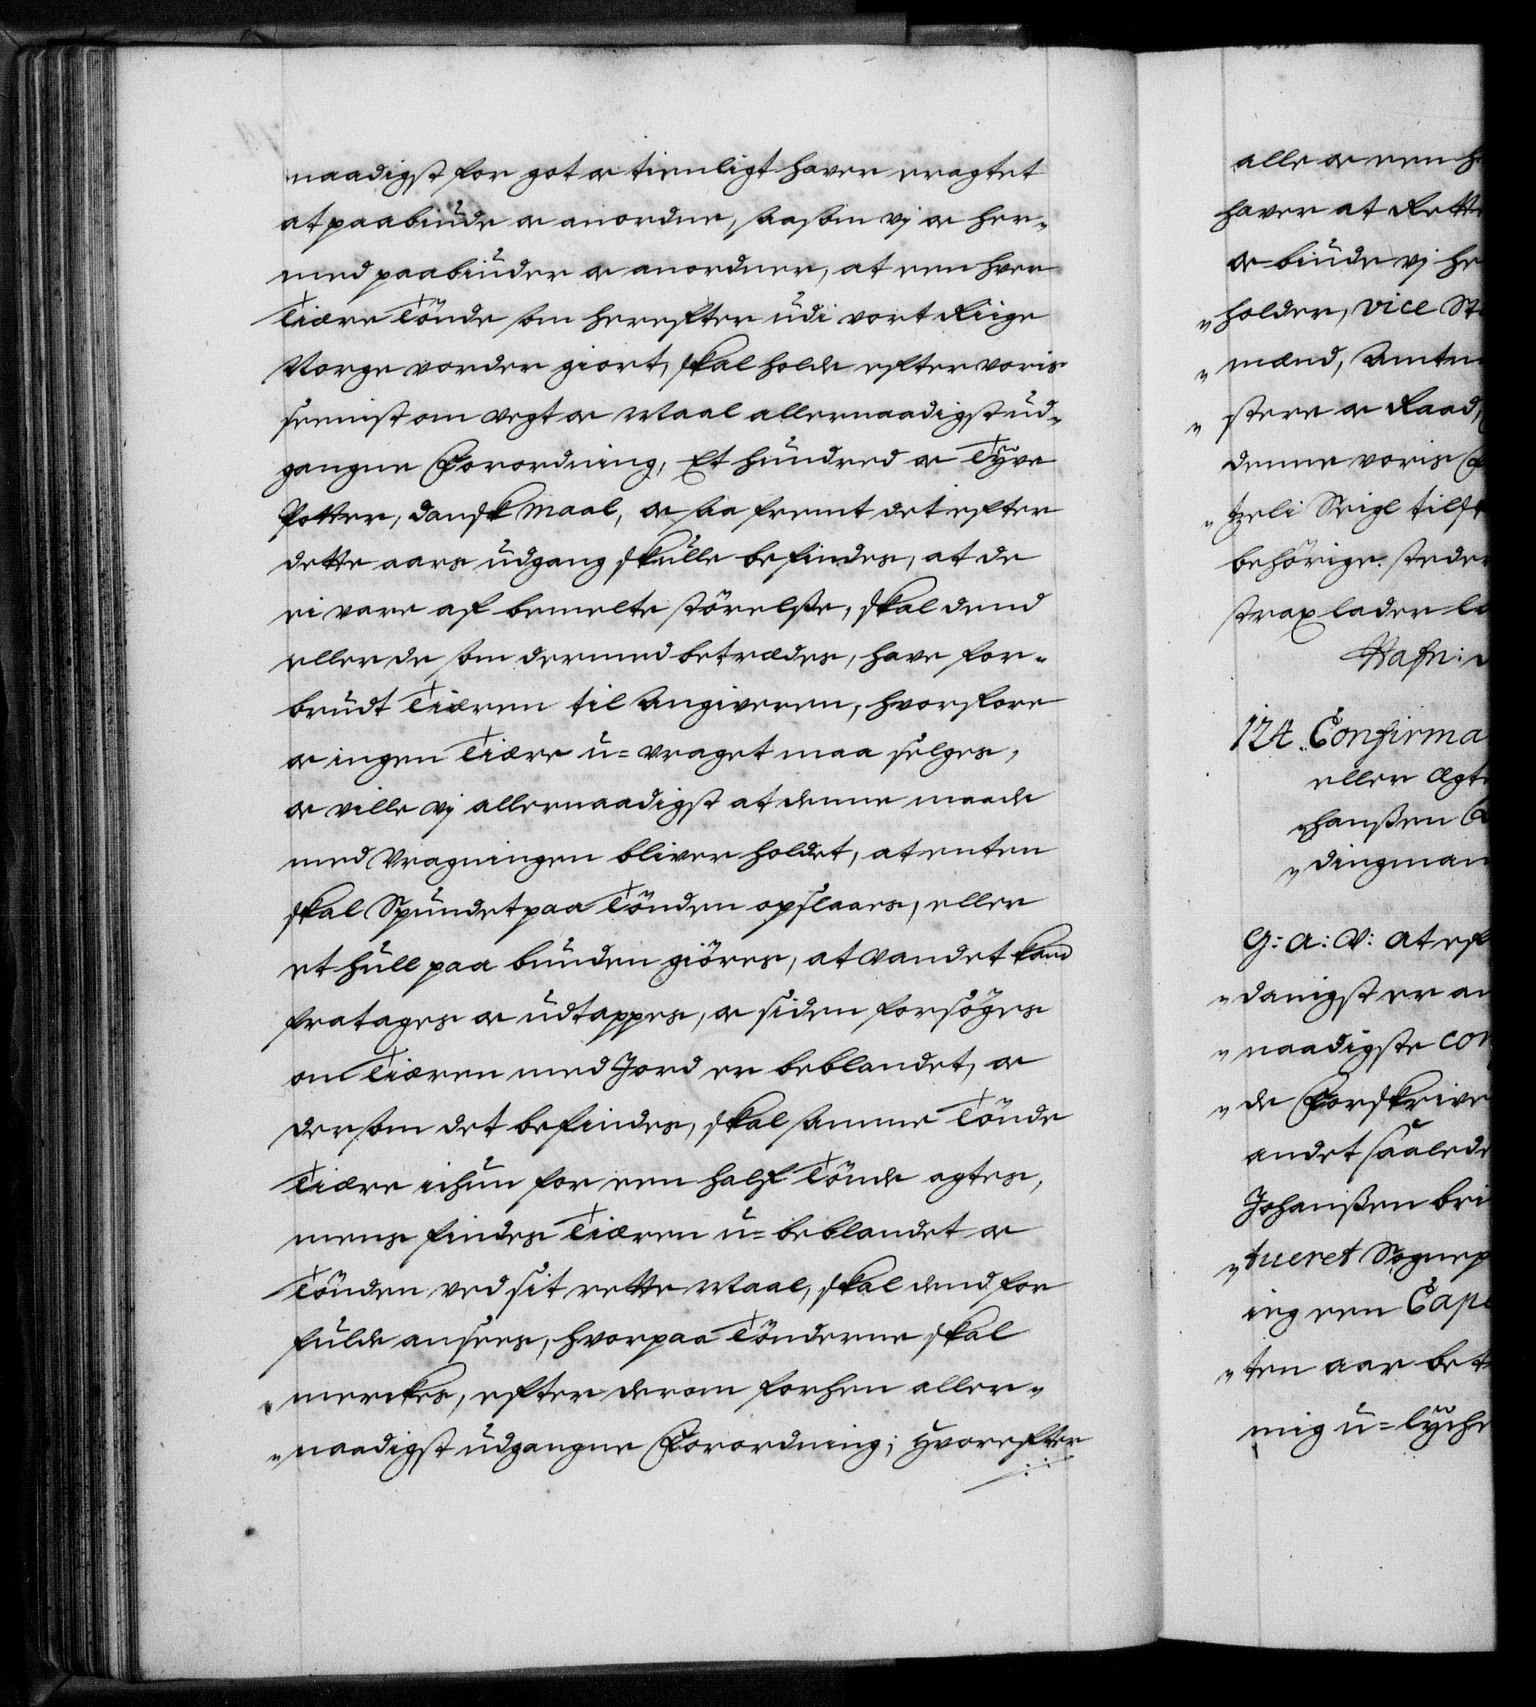 naadigst for got or tienligt haver eragtet
at paabiude or anordne, saasom vj or her„
med paabiuder or anordner, at een hver
Tiære Tönde som herefter udi vort Riige
Norge vorder giort, skal holde efter voris
seenist om Vegt or Maal allernaadigst ud„
gangne Forordning, Et hundred or Tyve
Potter, Dansk Maal, or saa fremt det efter
dette aars udgang skulle befindes, at de
ei vare af bemelte störelsse, skal dend
eller de som dermed betrædes, have for„
brudt Tiæren til Angiveren, hvorfore
or ingen Tiære u=vraget maa selges,
or ville vj allernaadigst at denne maade
med Vragningen bliver holdet, at enten
skal Spundet paa Tönden opslaaes, eller
et hull paa bunden giöres, at Vandet kand
fratages or udtappes, or siden forsöges
om Tiæren med Jord er beblandet, or
dersom det befindes, skal samme Tönde
Tiære ichun for een half Tönde agtes,
mens findes Tiæren u=beblandet or
Tönden ved sit rette Maal, skal dend for
fulde ansees, hvorpaa Tönderne skal
merckes, efter derom forhen aller„
„naadigst udgangne Forordning; Hvorefter
alle or een h
haver at Rette
or biude vj he
„holder, Vice St
„mænd, Amtm
„stere or Raad,
denne voris F
„tzeli Seigl tilst
behörige steder
strax lader l
Hafn: d
124. Confirma
eller Ægt
„hanssen
„dingman
G: A: V: At ef
„danigst er an
„naadigste con
„de Forskrive
andet saalede
Johanssen bri
„tueret Sognep
ieg een Cape
„ten aar bet
mig u=lyche